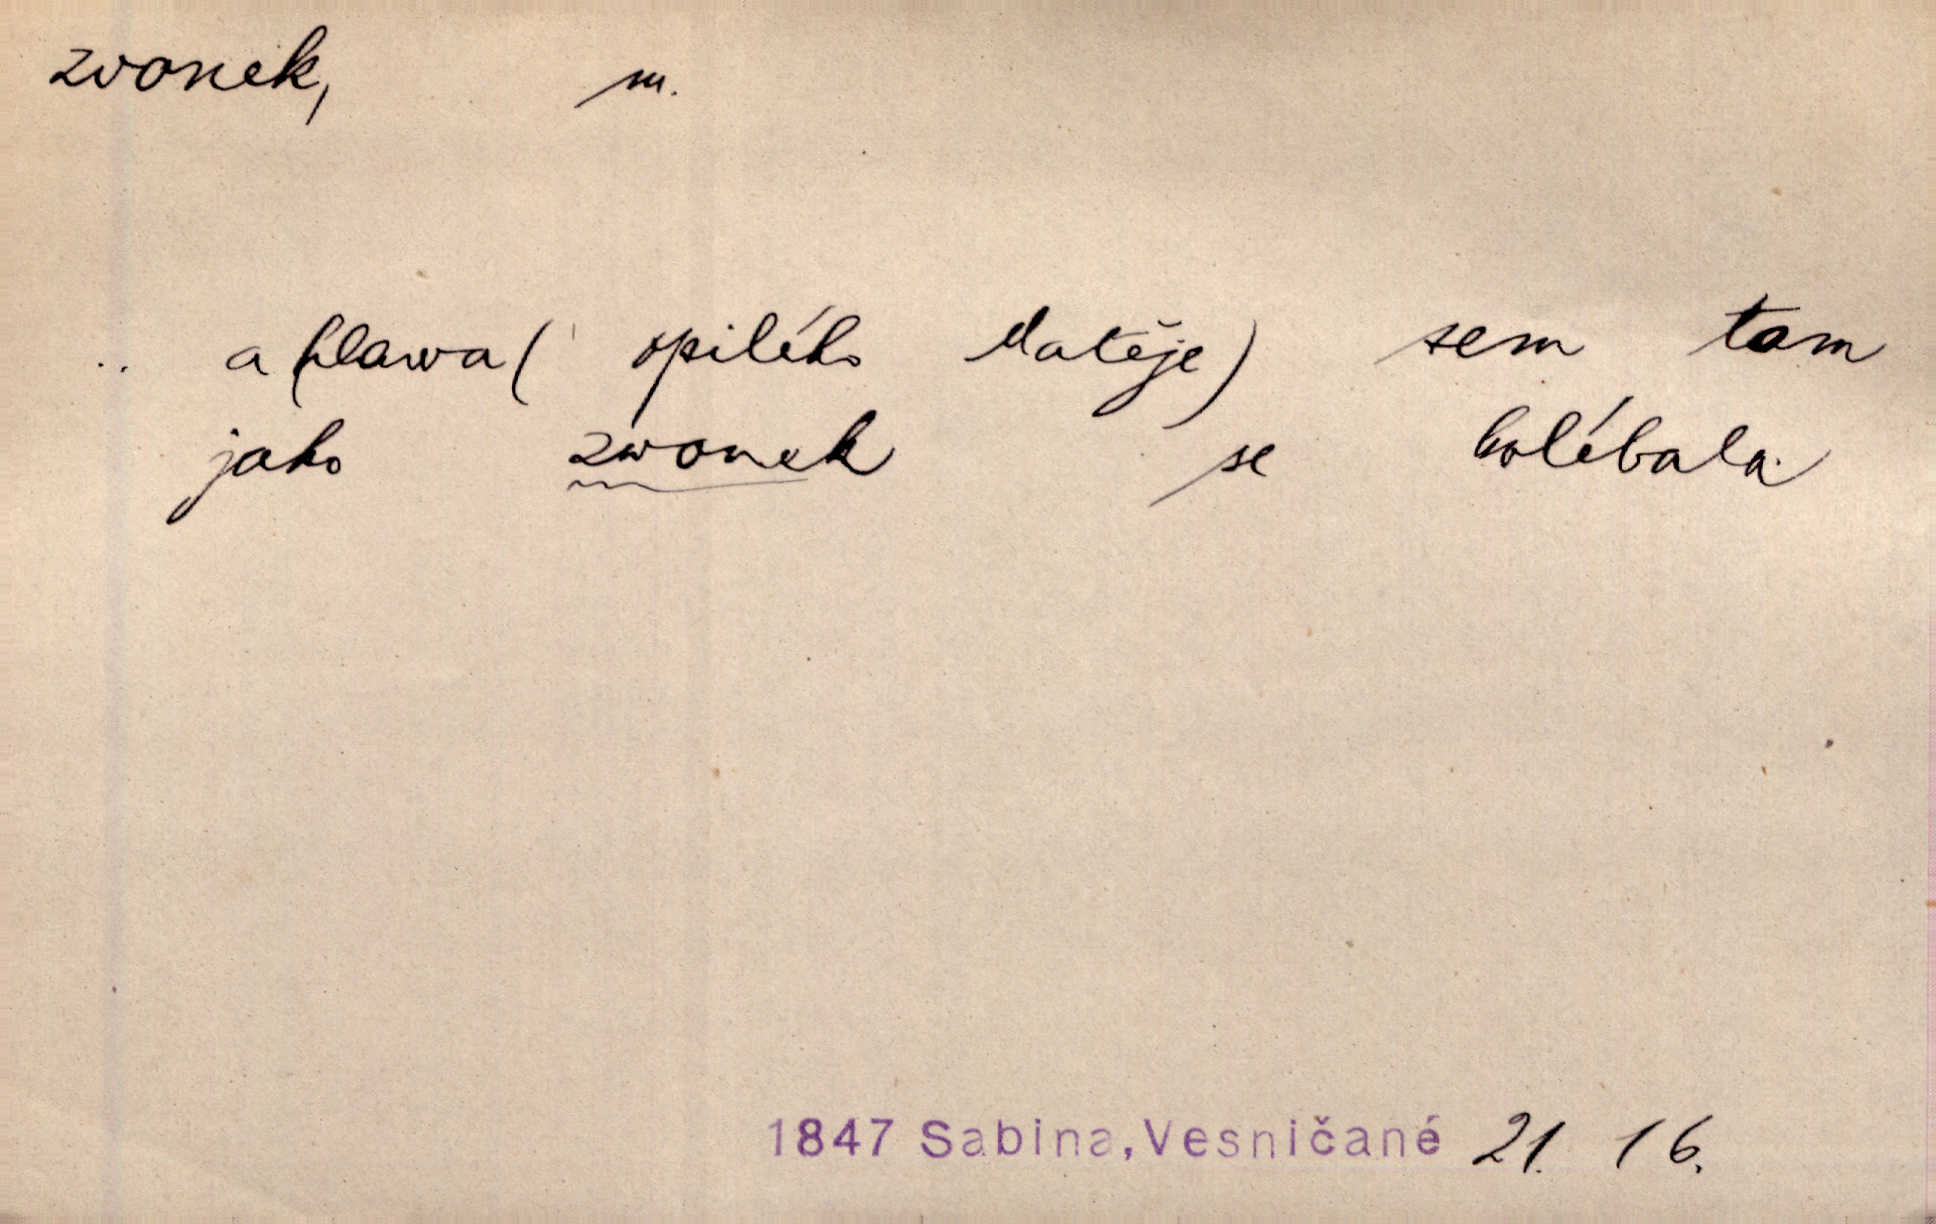 zvonek, m.
.. a hlawa ( opilého Matěje) sem tam
jako zwonek se kolébala.
1847 Sabina, Vesničané 21. 16.